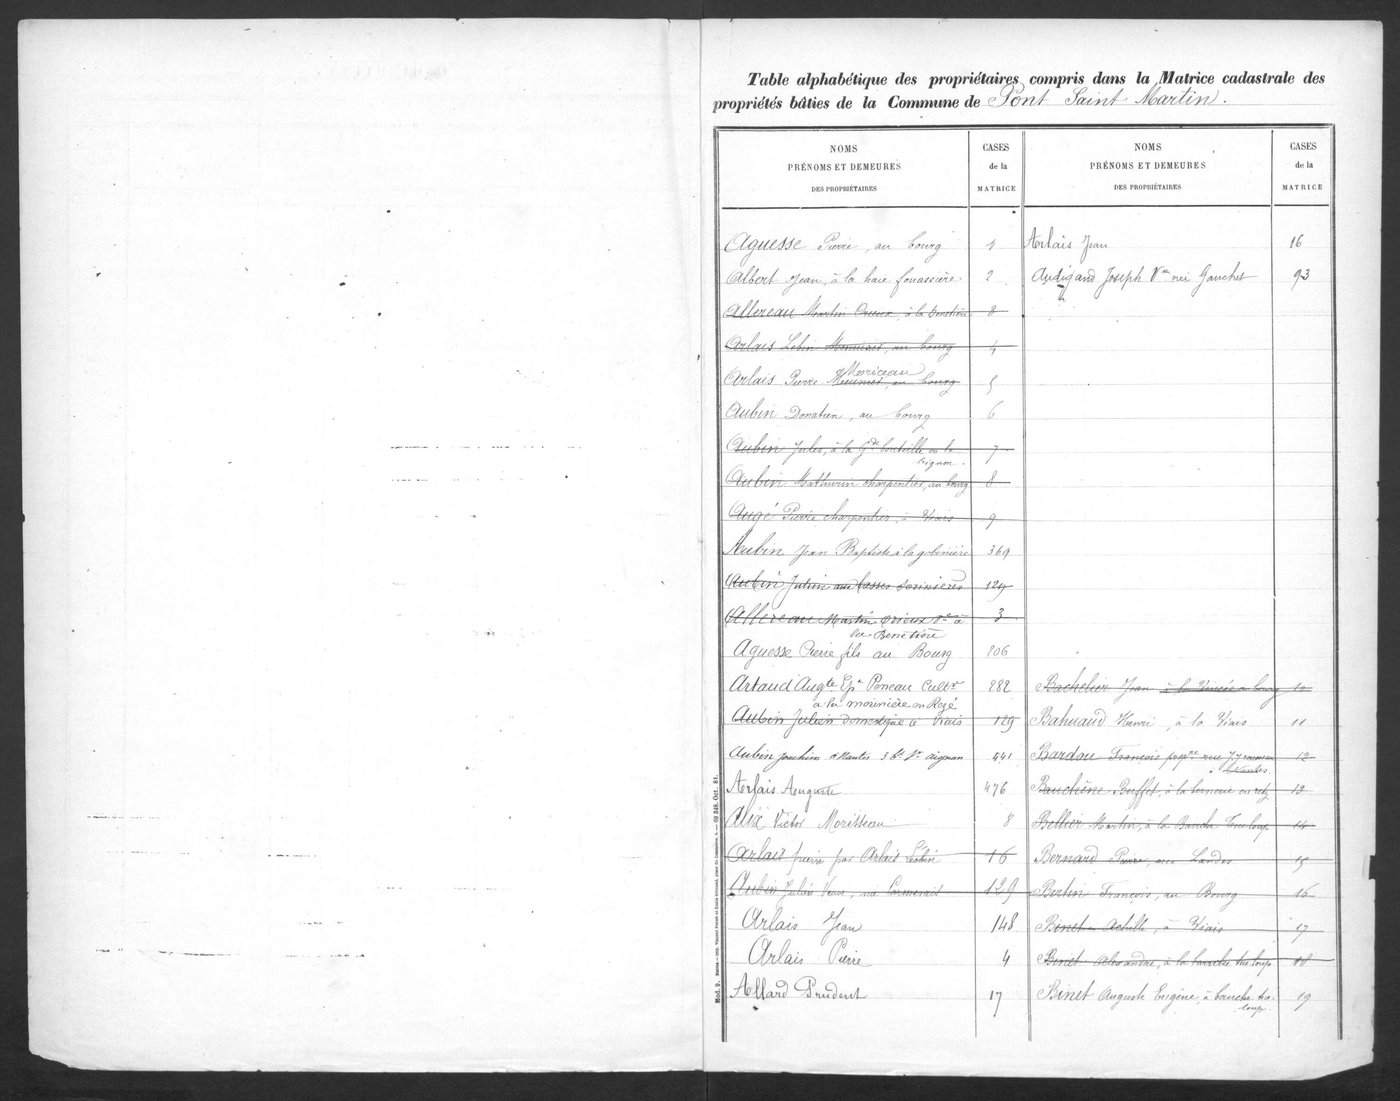 Table alphabétique des propriétaires compris dans la Matrice cadastrale des
propriétés bâties de la Commune de Pont Saint Martin.
NOMS
PRÉNOMS ET DEMEURES
DES PROPRIÉTAIRES
CASES
de la
MATRICE
Aguesse Pierre, au bourg 1
Albert Jean, à la haie fouassière 2
Allereau Martin Orieux, à la Benetière 3
Arlais Lebin Meunier, au bourg 4
Moriceau
Arlais Pierre Meunier, au bourg 5
Aubin Donatien, au bourg 6
Aubin Jules, à la Gde bouteille en le 7
bignon.
Aubin Mathurin charpentier, au bourg 8
Augé Pierre charpentier, à Viais 9
Aubin Jean Baptiste à la golinière 369
Aubin Julien aux basses sorinières 129
Allereau Martin Orieux Ve à 3
la Benetière
Aguesse Pierre fils au Bourg 206
Artaud Augte Ep. Peneau Cultr 282
à la mounière en Rezé
Aubin Julien Domestique à Viais 129
Aubin Joachim à Nantes 3 St aignan 441
Arlais Auguste 476
Alix Victor Morisseau 8
Arlais pierre par Arlais Lebin 16
Aubin Julien Veuve, née 129
Arlais Jean 148
Arlais Pierre 4
Allard Prudent 17
NOMS
PRÉNOMS ET DEMEURES
DES PROPRIÉTAIRES
CASES
de la
MATRICE
Arlais Jean 16
Audigand Joseph Vve née Gauchet 93
Bachelier Jean bourg 10
Bahuaud Henri, à la Viais 11
Bardou François propre rue 12
à Nantes
Bauchêne Buffet, à la bernerie en retz 13
Bellier Martin, à la Bauche Tue loup 14
Bernard Pierre, aux Landes 15
Bertin François, au Bourg 16
Binet Achille, à Viais 17
Binet Alexandre, à la bauche tue loup 18
Binet Auguste Eugène, à bauche tue- 19
loup